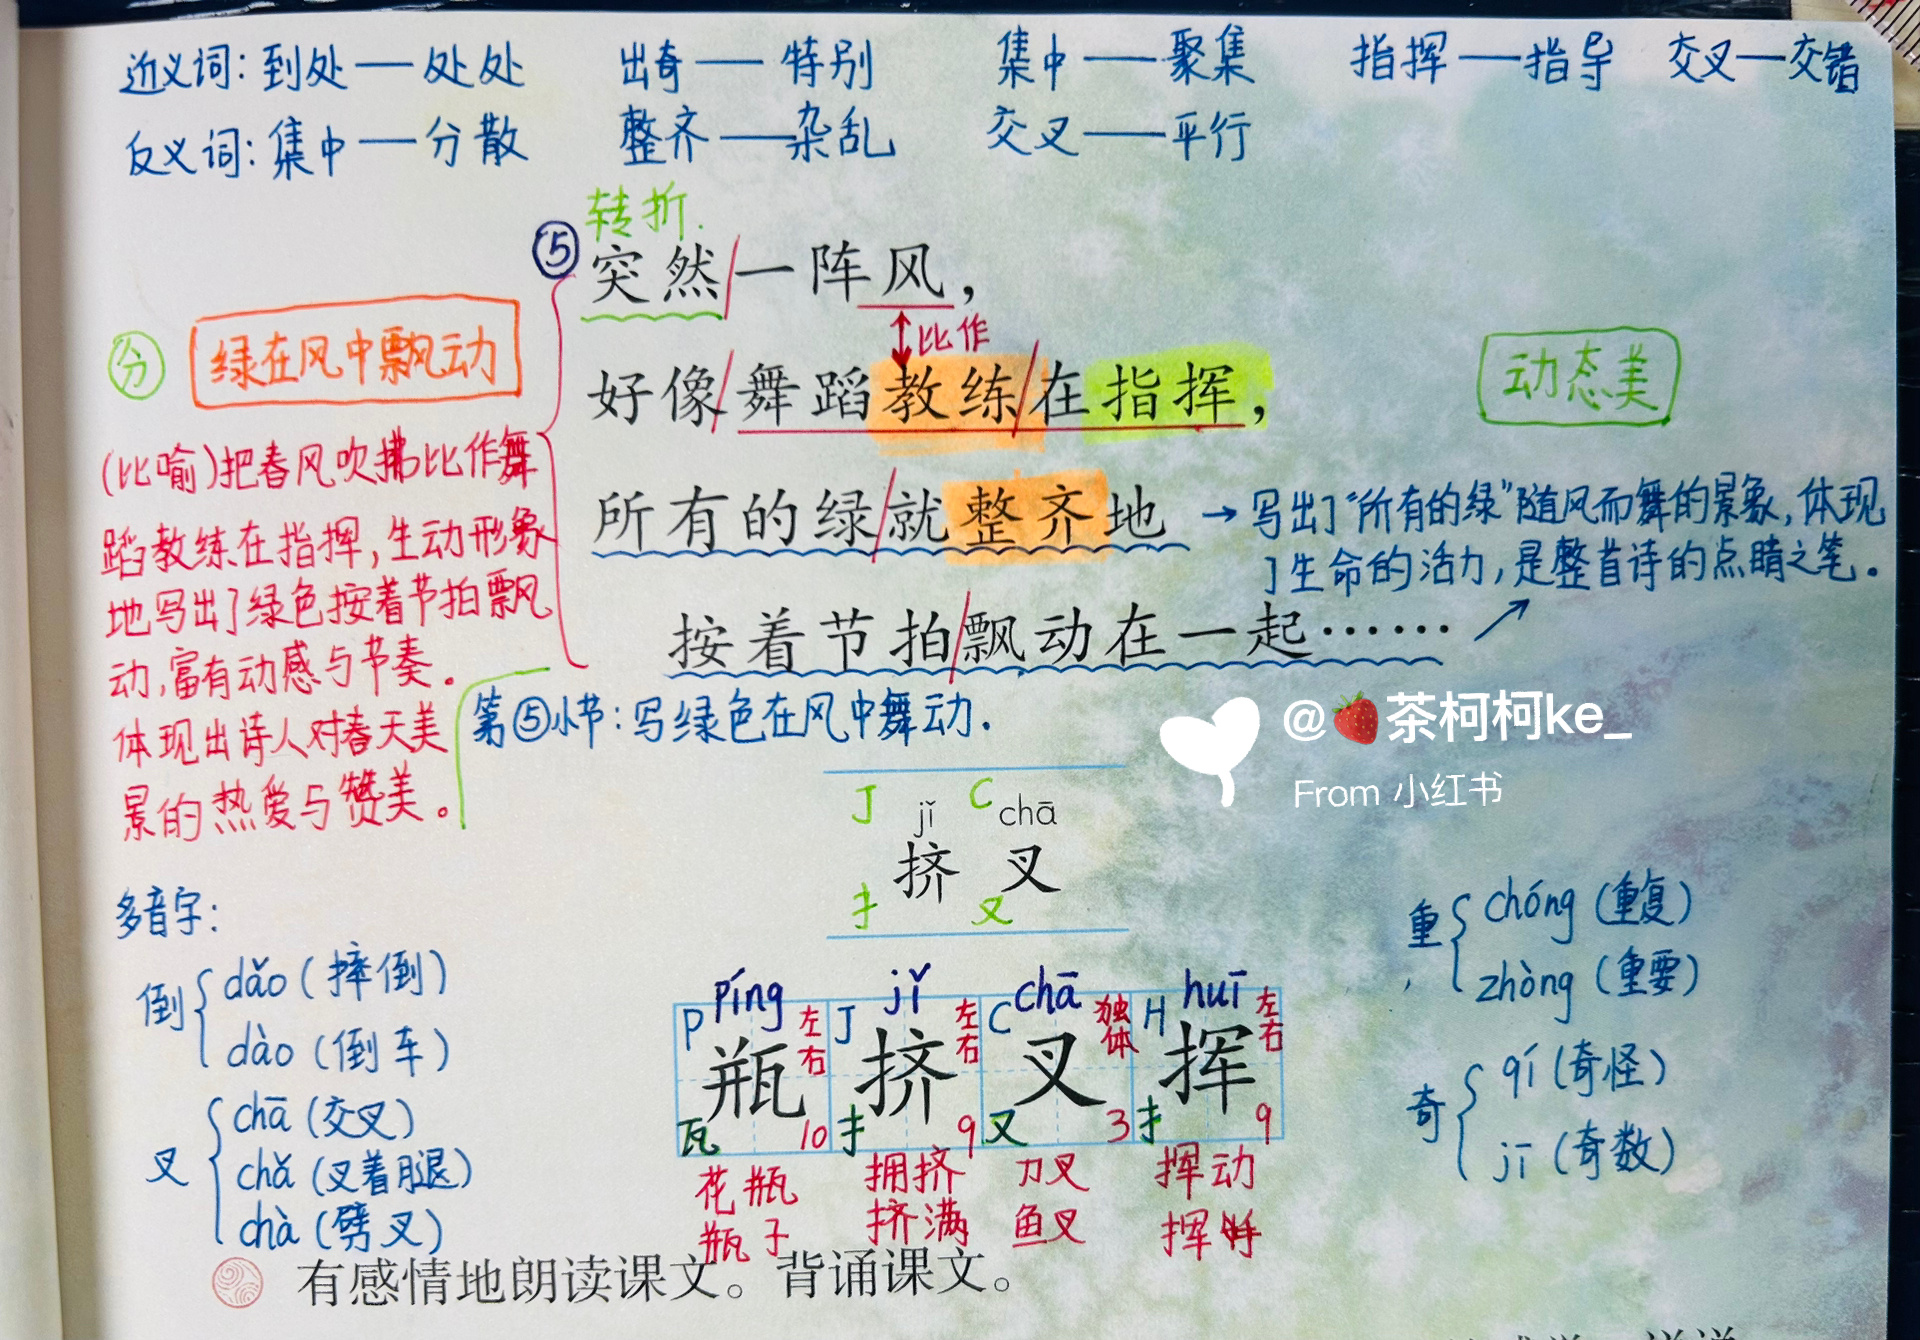 近义词：到处—处处 出奇—特别 集中—聚集 指挥—指导 交叉—交错
反义词：集中—分散 整齐—杂乱 交叉—平行
转折.
⑤ 突然/一阵风，
比作
分 绿在风中飘动
好像/舞蹈教练/在指挥，
动态美
(比喻)把春风吹拂比作舞
蹈教练在指挥,生动形象
地写出了绿色按着节拍飘
动,富有动感与节奏。
体现出诗人对春天美
景的热爱与赞美。
所有的绿/就整齐地
→写出了“所有的绿”随风而舞的景象,体现
了生命的活力,是整首诗的点睛之笔。
按着节拍/飘动在一起……
第⑤小节：写绿色在风中舞动.
@🍓茶柯柯ke_
From 小红书
J jǐ C chā
挤 叉
扌 又
多音字：
倒 dǎo（摔倒）
dào（倒车）
叉 chā（交叉）
chǎ（叉着腿）
chà（劈叉）
píng jǐ chā huī
P 左右 J 左右 C 独体 H 左右
瓶 挤 叉 挥
瓦 10 扌 9 又 3 扌 9
花瓶 拥挤 刀叉 挥动
瓶子 挤满 鱼叉 挥
重 chóng（重复）
zhòng（重要）
奇 qí（奇怪）
jī（奇数）
有感情地朗读课文。背诵课文。